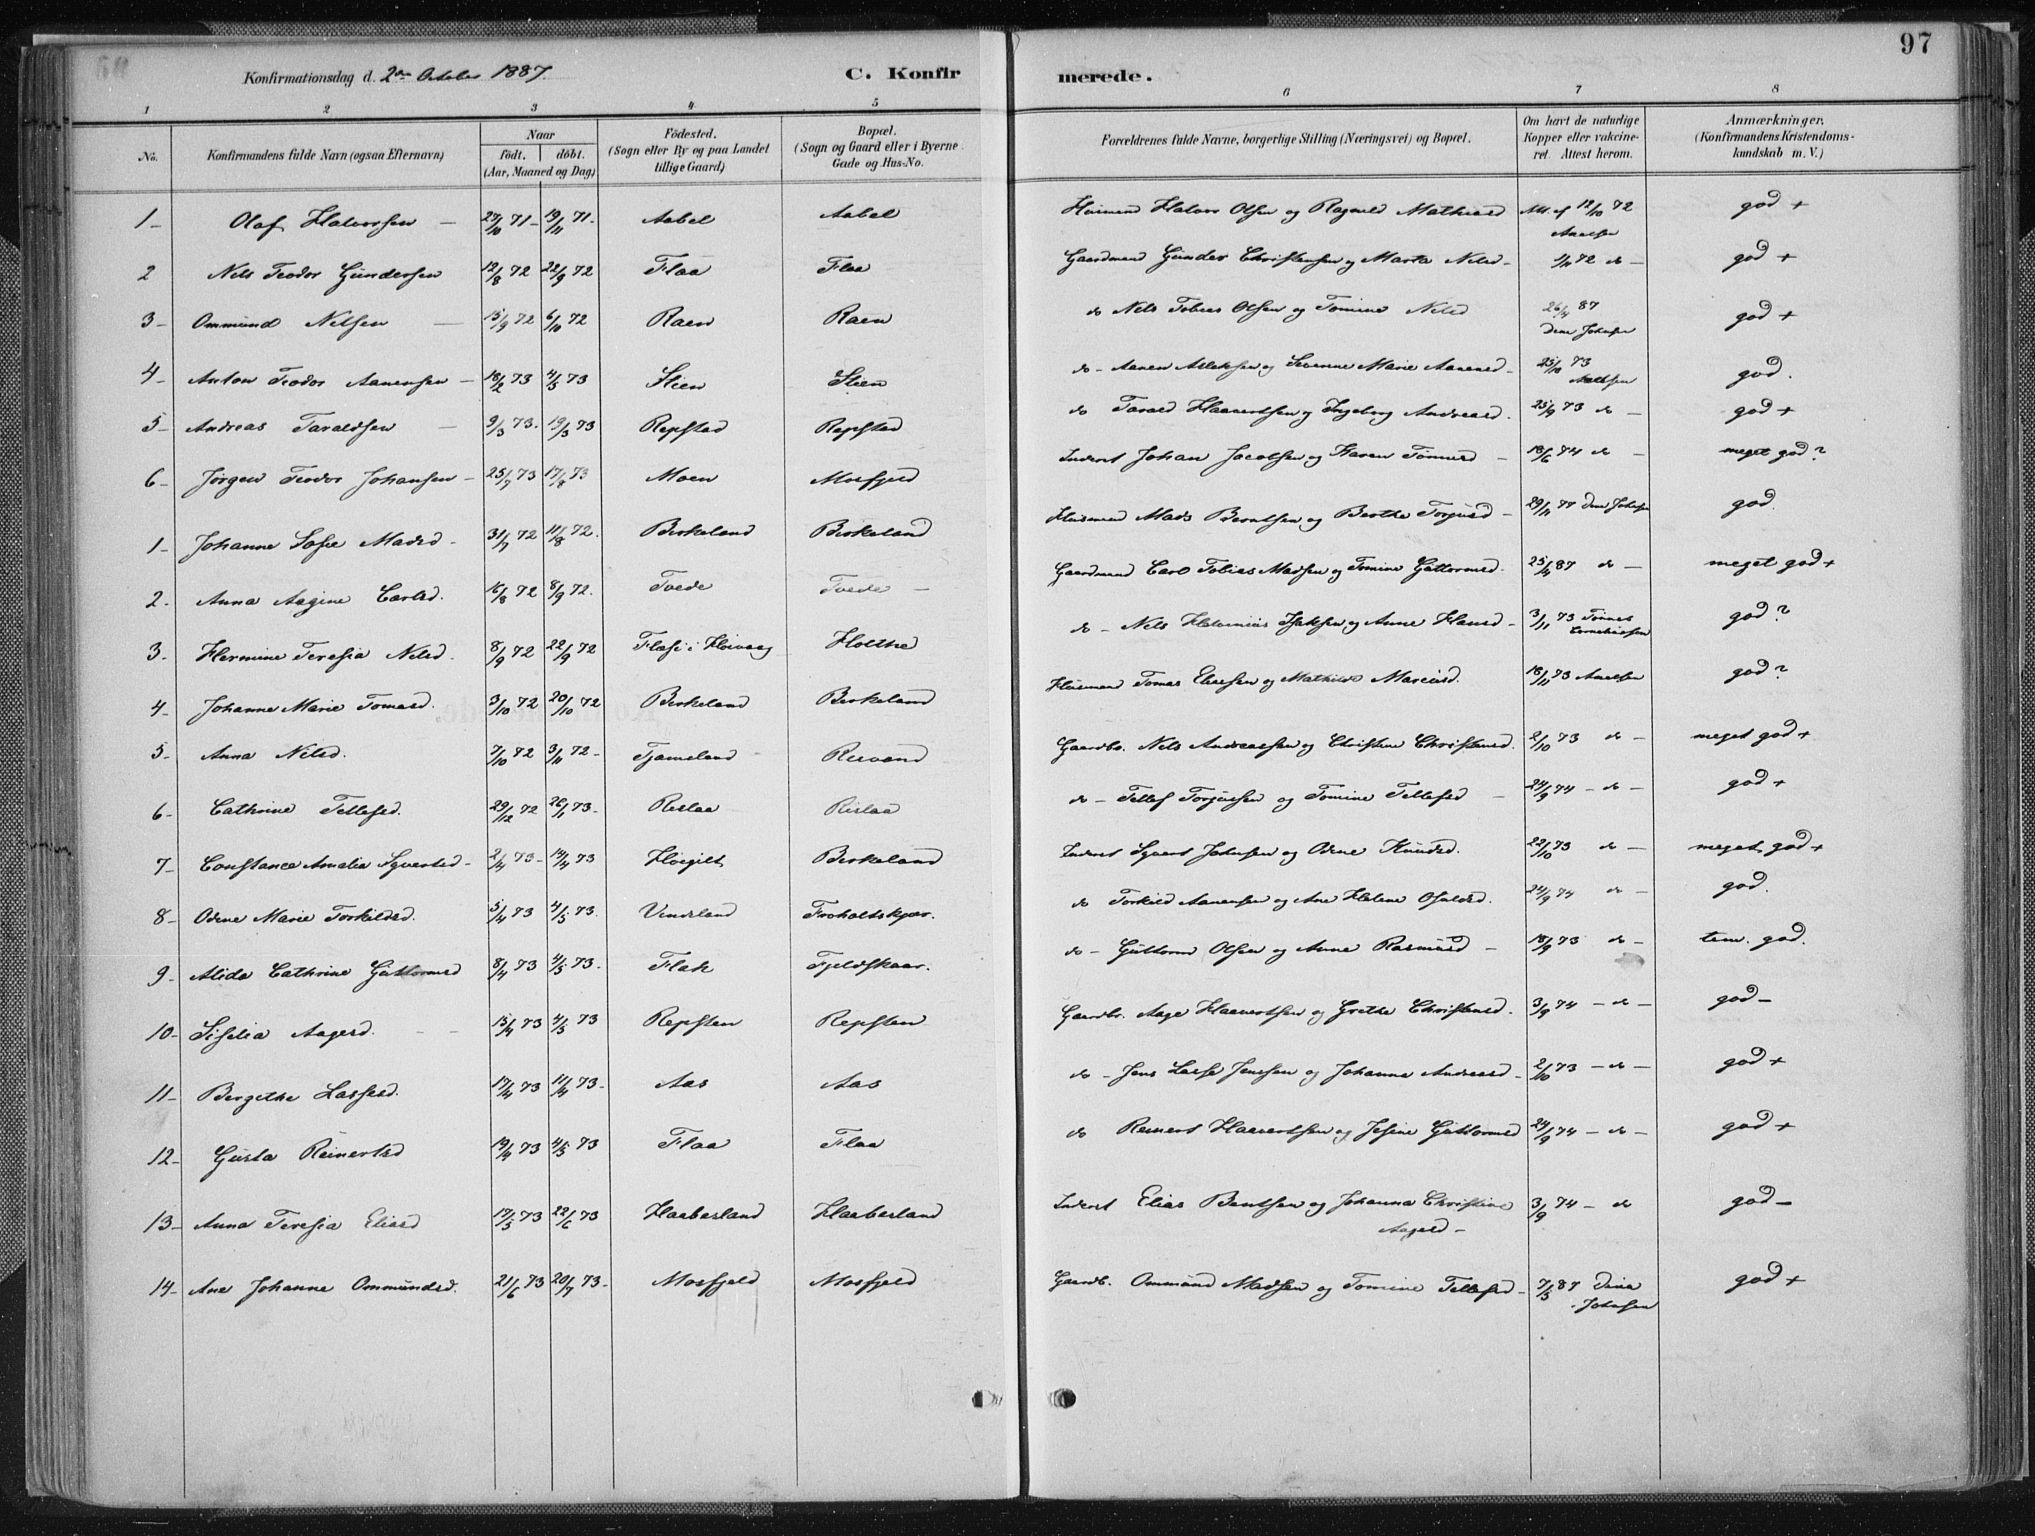 97
Konfirmationsdag d. 2den October 1887.
C. Konfirmerede.
1 2 3 4 5 6 7 8
No. Konfirmandens fulde Navn (ogsaa Efternavn) Naar födt. döbt. (Aar, Maaned og Dag) Födested. (Sogn eller By og paa Landet tillige Gaard) Bopæl. (Sogn og Gaard eller i Byerne Gade og Hus-No. Forældrenes fulde Navne, borgerlige Stilling (Næringsvei) og Bopæl. Om havt de naturlige Kopper eller vakcineret. Attest herom. Anmærkninger. (Konfirmandens Kristendomskundskab m. V.)
1 - Olaf Halvorsen - 29/10 71 - 19/11 71 - Aabel Aabel Husmand Halvor Olsen og Ragnild Mathiasd Att. af 12/10 72 god +
2 Nels Teodor Gundersen 12/8 72 22/9 72 Flaa Flaa Gaardmand Gunder Christensen og Marta Nelsd - 72 do - god +
3 - Ommund Nelsen - 15/9 72 6/10 72 Raen Raen do Nels Tobias Olsen og Tomine Nelsd 26/4 87 Johnsen god +
4 - Anton Teodor Aanensen - 18/2 73 4/5 73 Steen Steen do - Aanen Allaksen og Severine Marie Aanensd - 25/10 73 god.
5 - Andreas Taraldsen - 9/3 73. 19/3 73 Repstad Repstad do Tarald Haavertsen og Ingeborg Andreasd. 25/9 73 do - god +
6 - Jørgen Teodor Johansen - 25/7 73 17/8 73 Moen Mosfjeld Inderst Johan Jacobsen og Karen Tønnesd - 18/6 74 do - meget god ?
1 - Johanne Sofie Madsd - 31/7 72 11/8 72. Birkeland Birkeland Husmand Mads Berntsen og Berthe Torjusd - 29/11 77 Johnsen god.
2. Anna Aagine Carlsd. 16/8 72 8/9 72. Tvede Tvede - Gaardmand Carl Tobias Madsen og Tomine Guttormsd. 25/4 87 do - meget god +
3. Hermine Teresia Nelsd. 8/9 72 22/9 72 i Høivaag Holthe do - Nels Isaksen og Anne Hansd - 3/11 73 Tønnes Corneliussen god ?
4 - Johanne Marie Tomasd. 3/10 72 20/10 72 Birkeland Birkeland Husmand Tomas Eliesen og Mathilde Mareusd. 18/11 73 god ?
5 - Anna Nelsd. 7/10 72 3/11 72 - Tjomeland Gaardbr. Nels Andreassen og Christine Christensd. 2/10 73 do - meget god +
6 - Cathrine Tellefsd. 29/12 72 26/1 73 - Rislaa Rislaa do - Tellef Torjussen og Tomine Tellefsd - 24/9 74 - do - god +
7 - Constance Amalia Syvertsd - 2/4 73 - 14/4 73 Høigilt Birkeland Inderst Syvert Johnsen og Odene Knudsd. 22/10 73 do - meget god +
8 - Odene Marie Torkildsd. 5/4 73 4/5 73. Vindsland Froholtskjær. do Torkild Aanensen og Ane Helene Osuldsd. 24/9 74 do - god.
9 - Alida Cathrine Guttormsd 8/4 73 4/5 73. Flak Fjeldskaar. do - Guttorm Olsen og Anne Rasmusd - 18/9 73 do - tem. god.
10 - Siselia Aagesd. - - 15/4 73 4/5 73 Repsten Repsten Gaardbr. Aage Haavertsen og Grethe Christensd. 3/9 74 - do - god -
11 - Bergithe Lassesd. 17/4 73 11/4 73 - Aas Aas do - Jens Lasse Jensen og Johanna Andreasd - 2/10 73 - do - god +
12 - Gusta Reinertsd 19/4 73 4/5 73 Flaa Flaa do Reinert Haavertsen og Jesine Guttormsd 24/9 74 - do - god +
13 - Anna Teresia Eliasd 17/5 73 22/6 73 Haabesland Haabesland Inderst Elias Bentsen og Johanna Christine Aagesd - 3/9 74 - do god -
14 - Ane Johanne Ommundsd. 21/6 73 20/7 73 - Mosfjeld Mosfjeld Gaardb. Ommund Madsen og Tomine Tellefsd - 7/5 87 Dina Johnsen god +